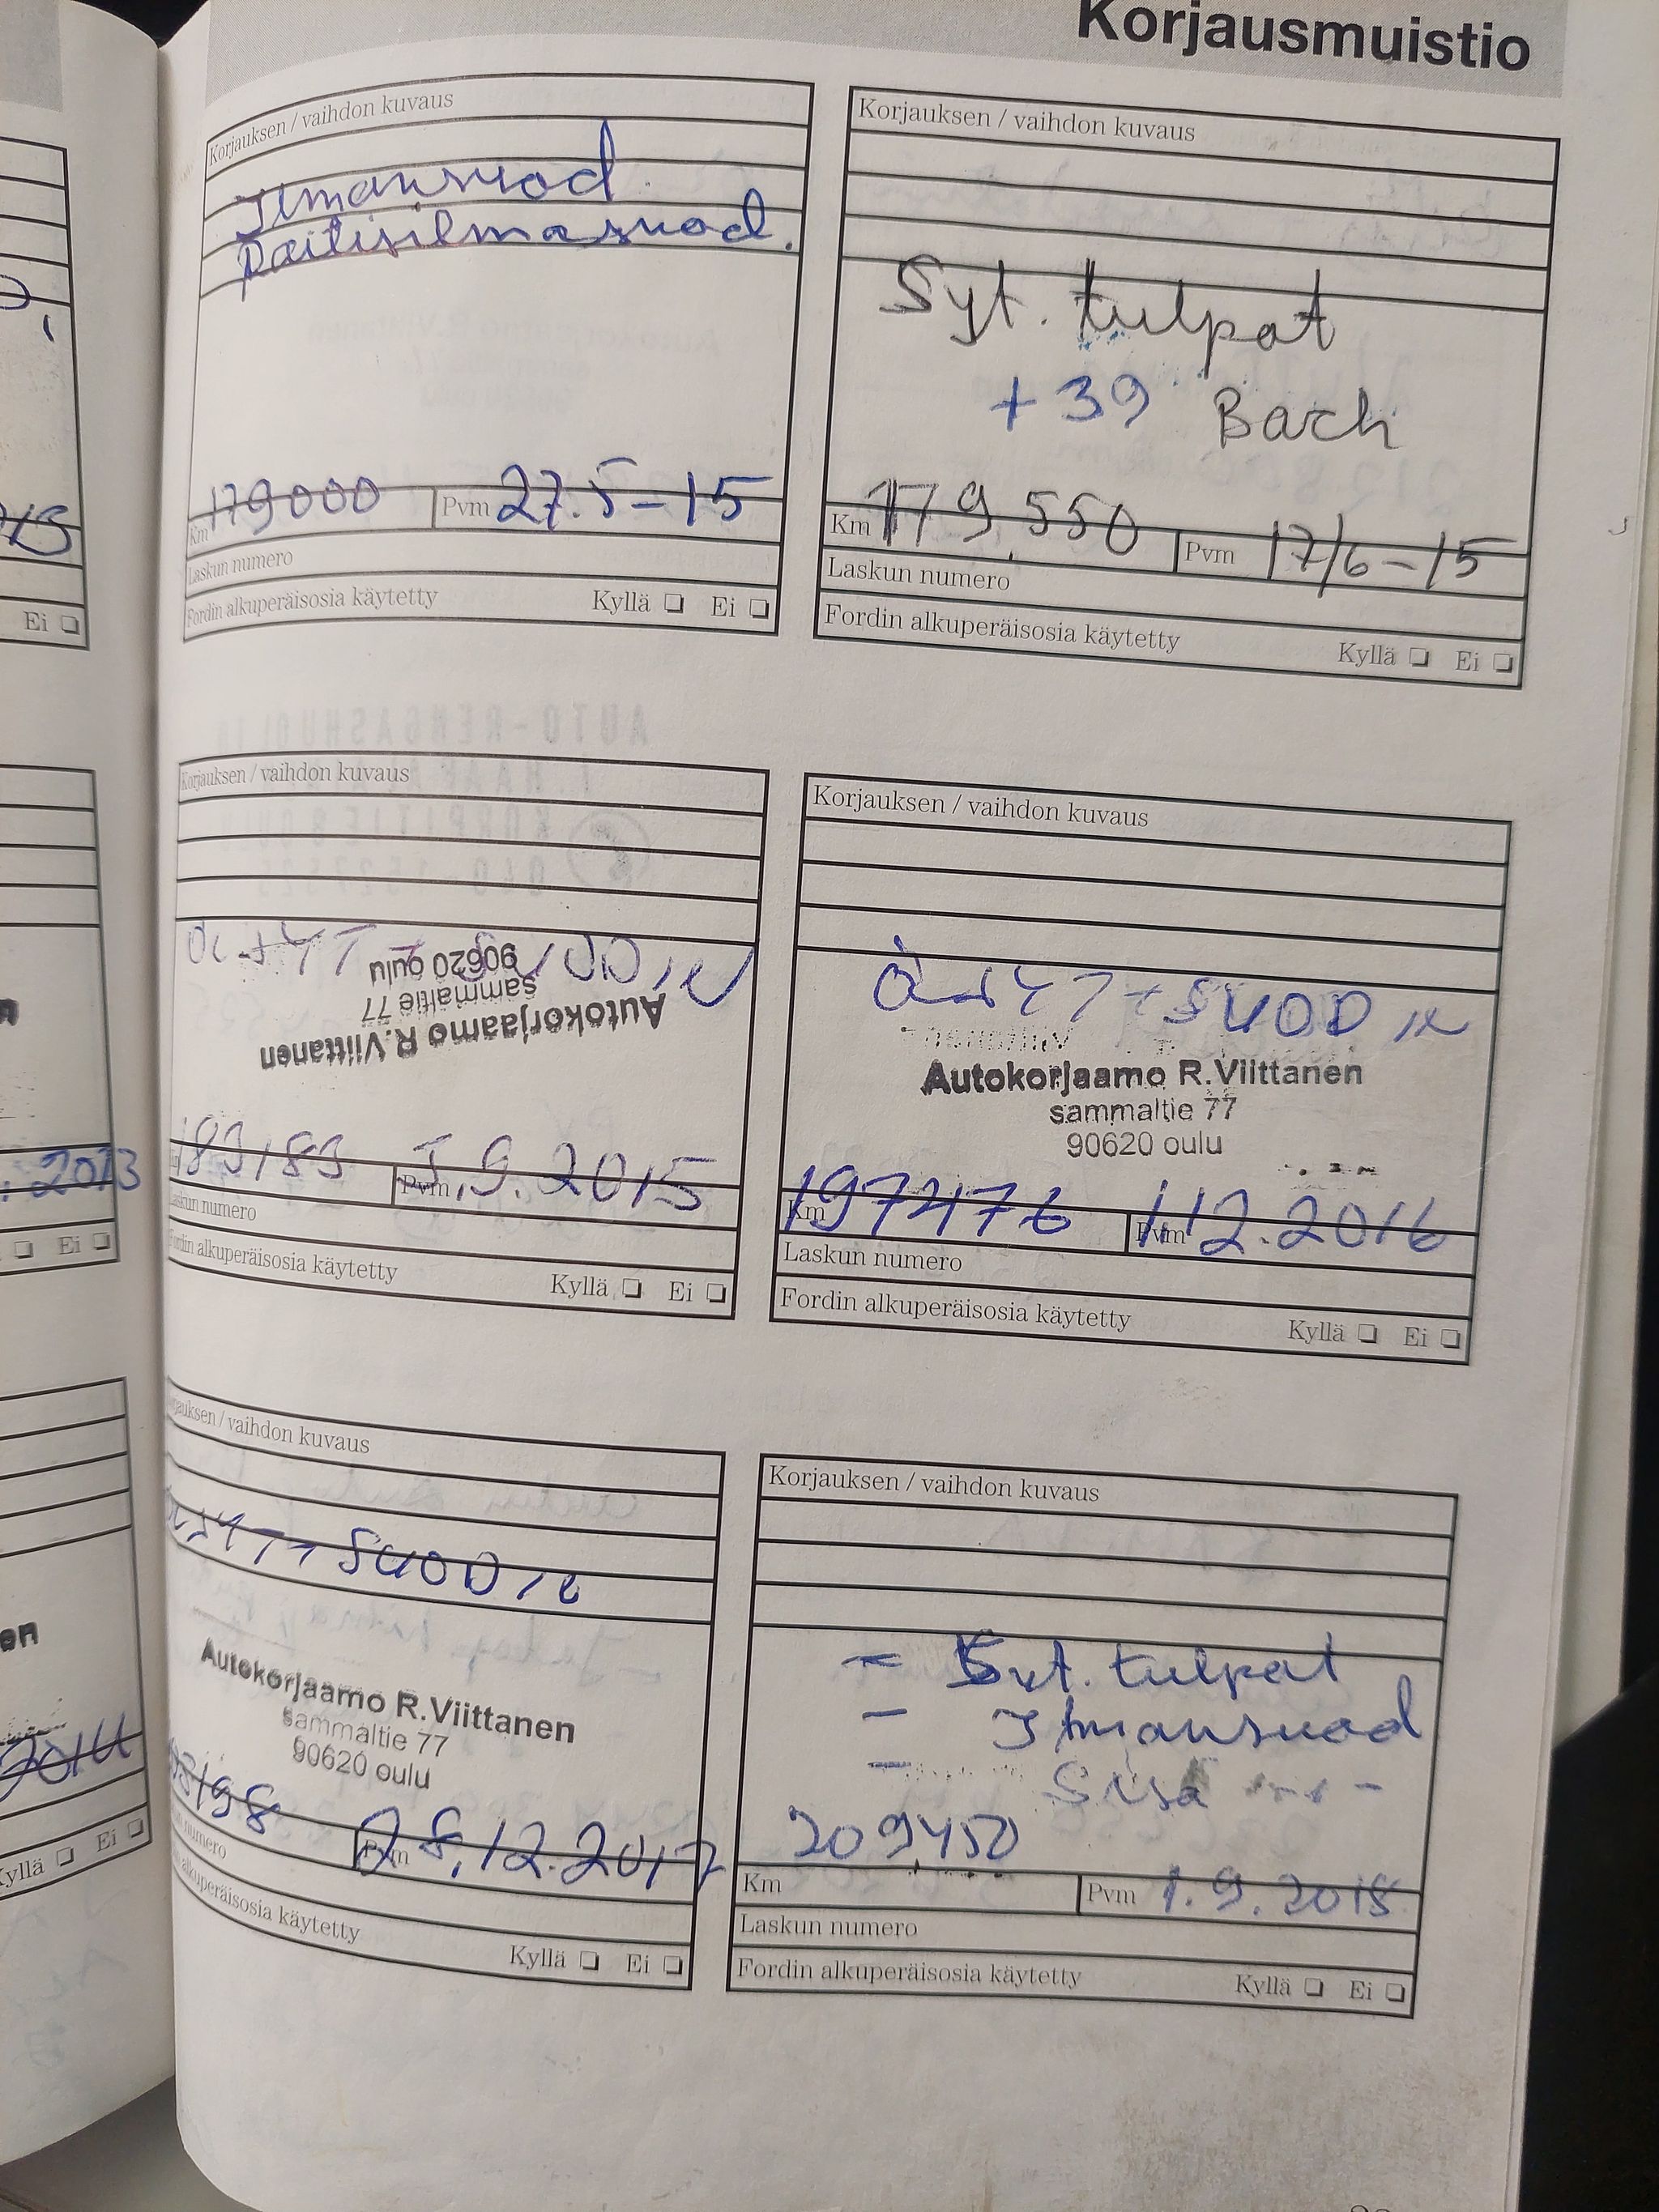 Korjausmuistio
Korjauksen / vaihdon kuvaus
Ilmansuod.
Raitisilmasuod.
Km 179000 Pvm 27.5-15
Laskun numero
Fordin alkuperäisosia käytetty Kyllä Ei
Korjauksen / vaihdon kuvaus
Syt. tulpat
+39 Bach
Km 179,550 Pvm 17/6-15
Laskun numero
Fordin alkuperäisosia käytetty Kyllä Ei
Korjauksen / vaihdon kuvaus
Autokorjaamo R.Viittanen
sammaltie 77
90620 oulu
183183 Pvm 5.9.2015
Laskun numero
Fordin alkuperäisosia käytetty Kyllä Ei
Korjauksen / vaihdon kuvaus
SUOD
Autokorjaamo R.Viittanen
sammaltie 77
90620 oulu
Km 197476 Pvm 1.12.2016
Laskun numero
Fordin alkuperäisosia käytetty Kyllä Ei
Korjauksen / vaihdon kuvaus
SUOD
Autokorjaamo R.Viittanen
sammaltie 77
90620 oulu
Pvm 28.12.2017
numero
alkuperäisosia käytetty Kyllä Ei
Korjauksen / vaihdon kuvaus
- Syt. tulpat
- Ilmansuod
- Sisä
209450
Km Pvm 1.9.2018
Laskun numero
Fordin alkuperäisosia käytetty Kyllä Ei
Ei
2013
Ei
en
2014
Kyllä Ei